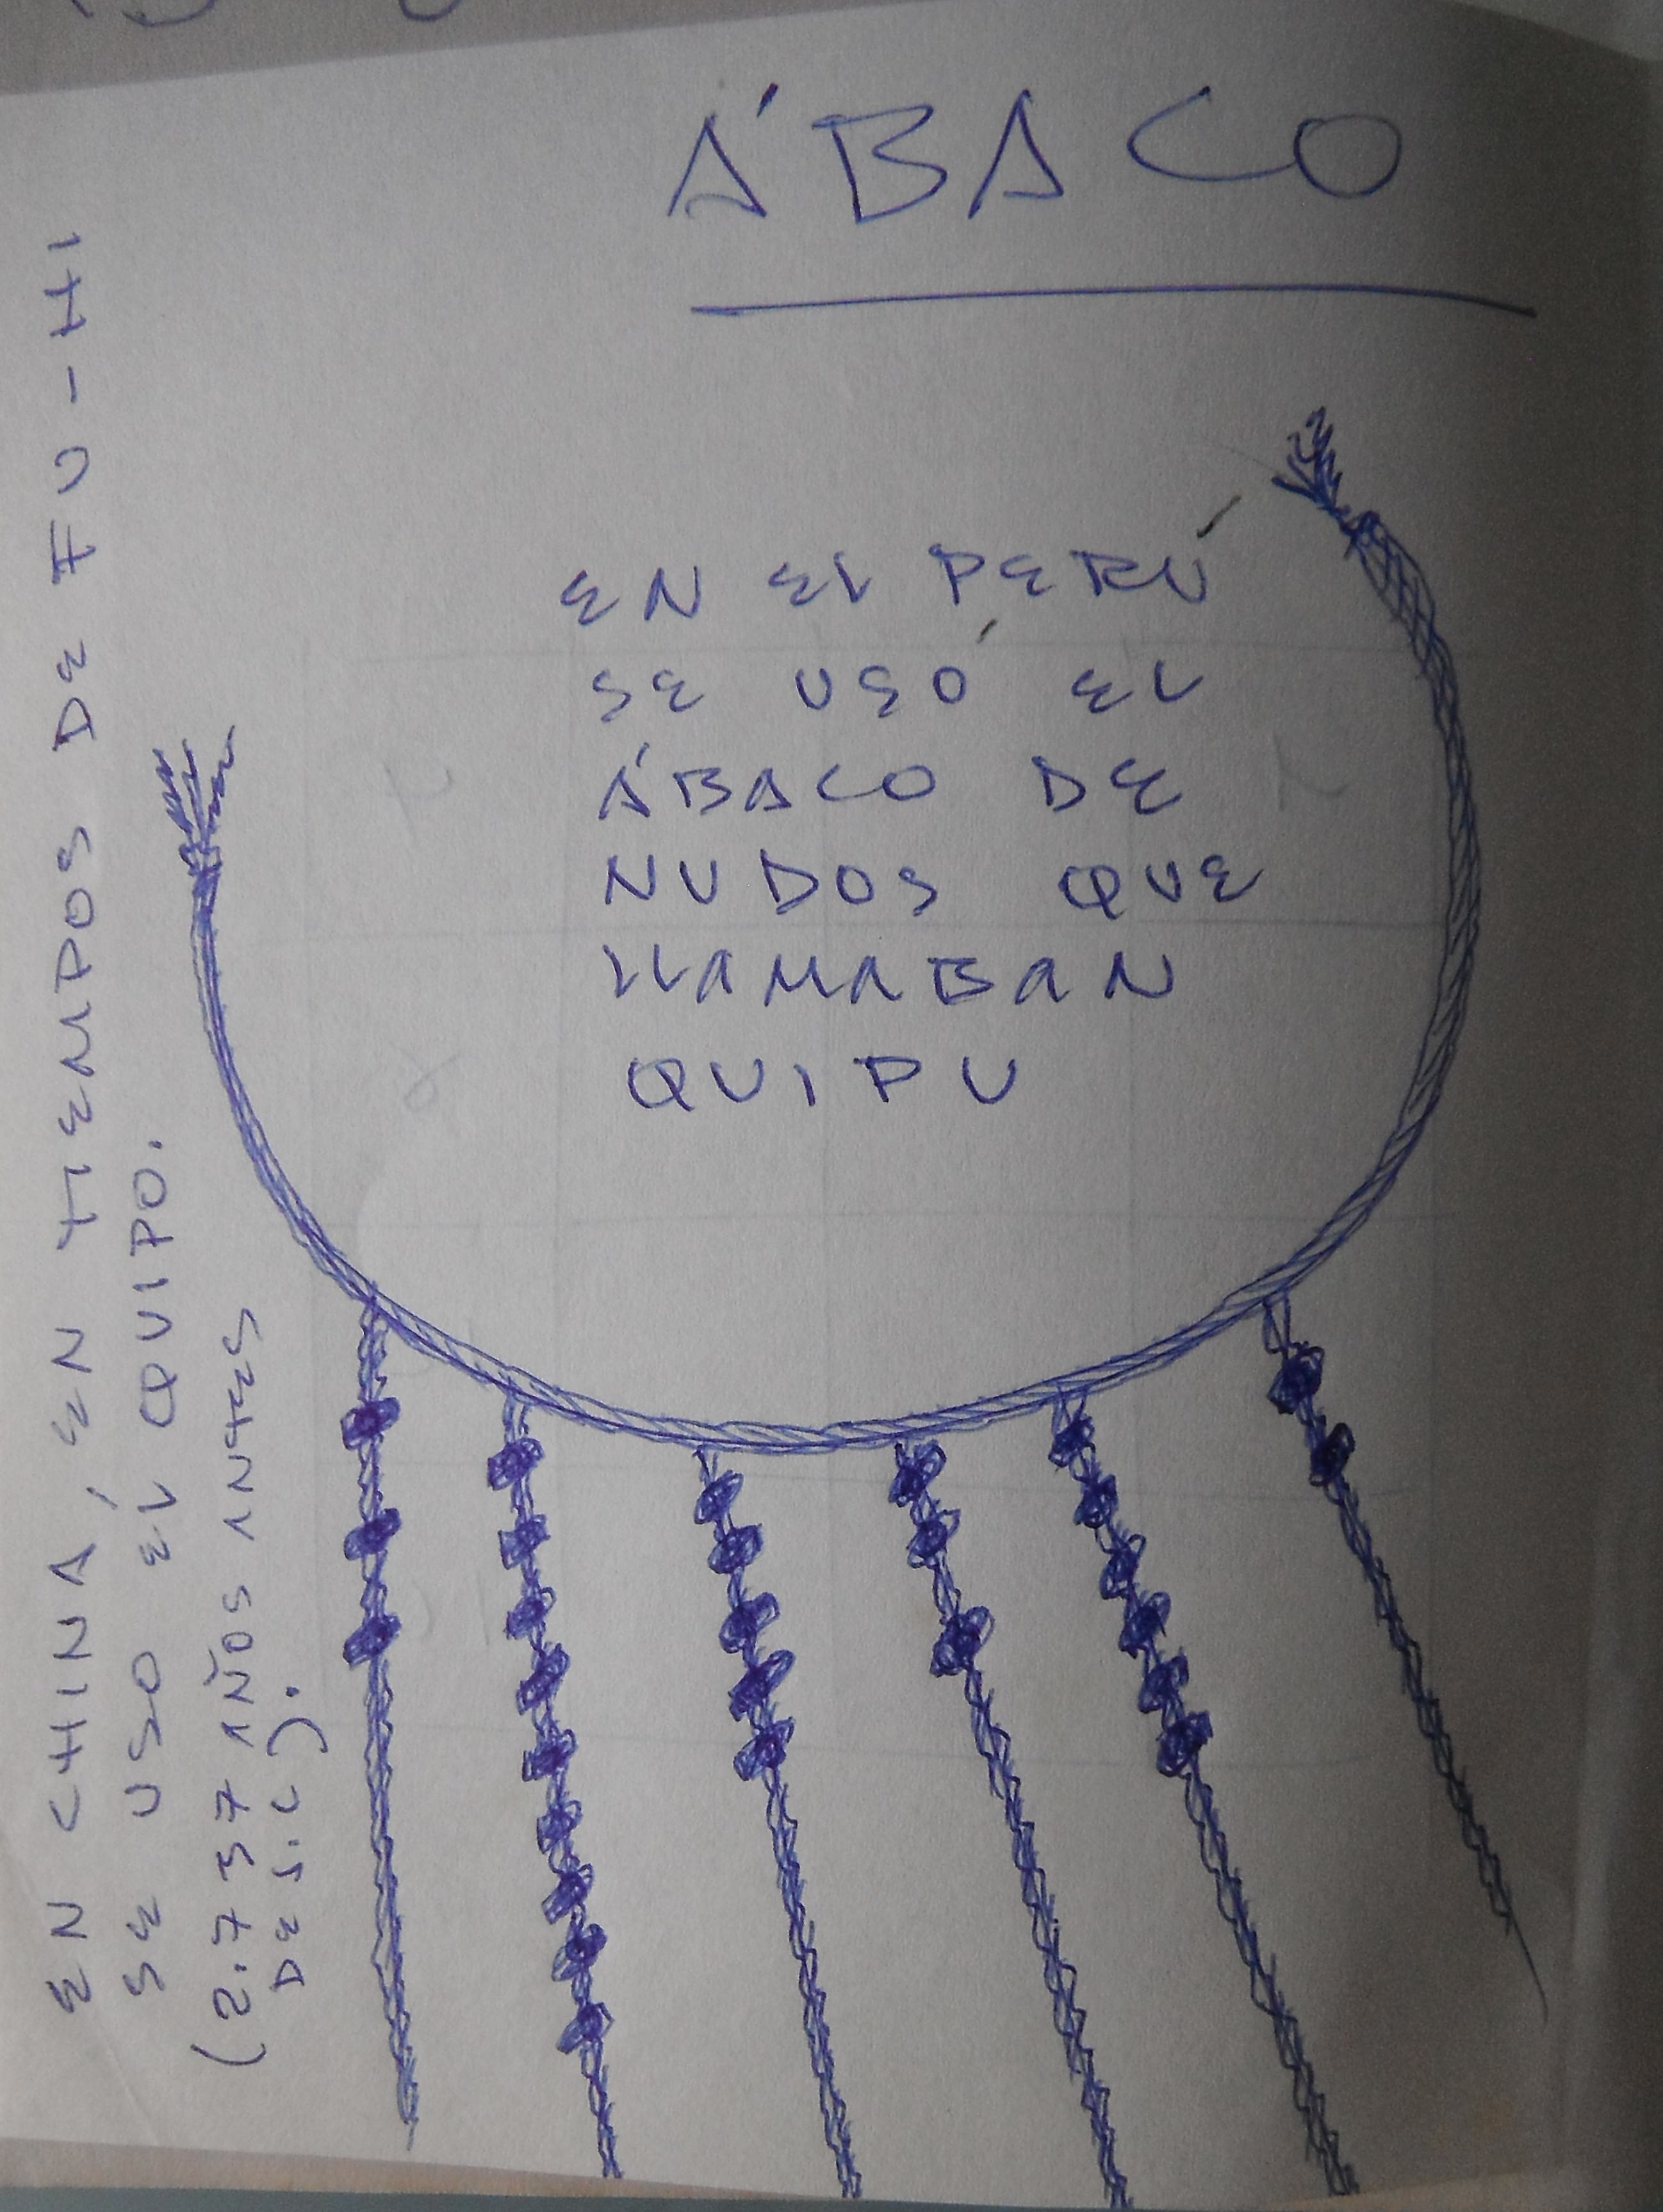 ÁBACO
EN EL PERÚ
SE USÓ EL
ÁBACO DE
NUDOS QUE
LLAMABAN
QUIPU
EN CHINA, EN TIEMPOS DE FU-HI
SE USO EL QUIPO.
(2.737 AÑOS ANTES
DE J.C).